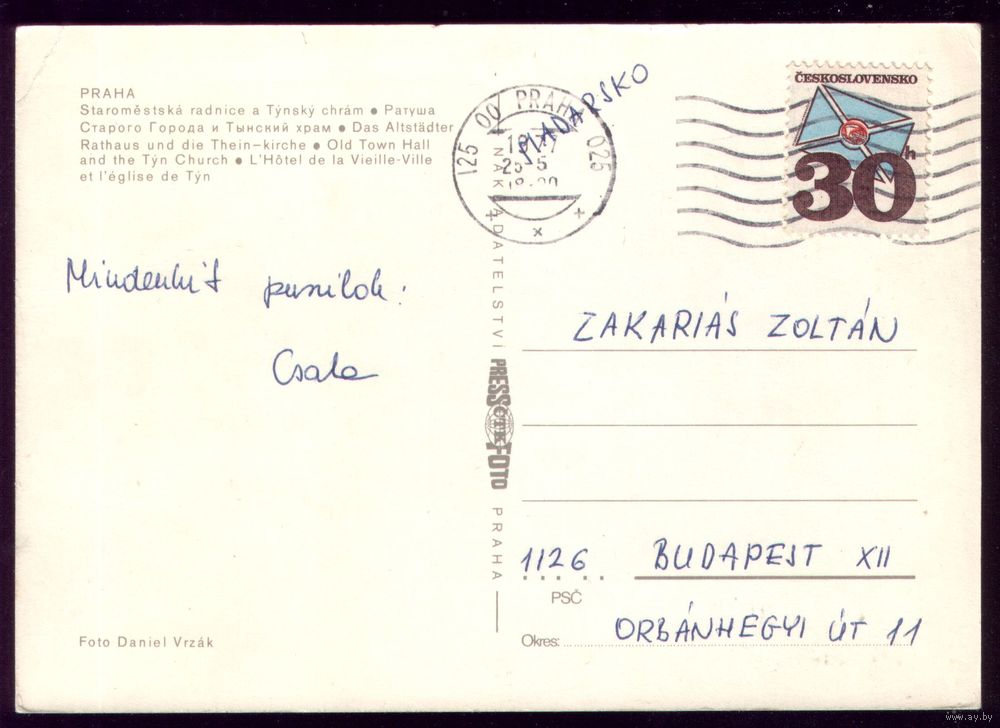 PRAHA
Staroměstská radnice a Týnský chrám ● Ратуша
Старого Города и Тынский храм ● Das Altstädter
Rathaus und die Thein-kirche ● Old Town Hall
and the Týn Church ● L'Hôtel de la Vieille-Ville
et l'église de Týn
125 00 PRAHA 025
25 5
MAĎARSKO
ČESKOSLOVENSKO
30 h
Mindenkit puszilok:
Csala
NAKLADATELSTVÍ
PRESSFOTO
ČTK
PRAHA
ZAKARIÁS ZOLTÁN
1126 BUDAPEST XII
PSČ
Okres: ORBÁNHEGYI ÚT 11
Foto Daniel Vrzák
www.ay.by